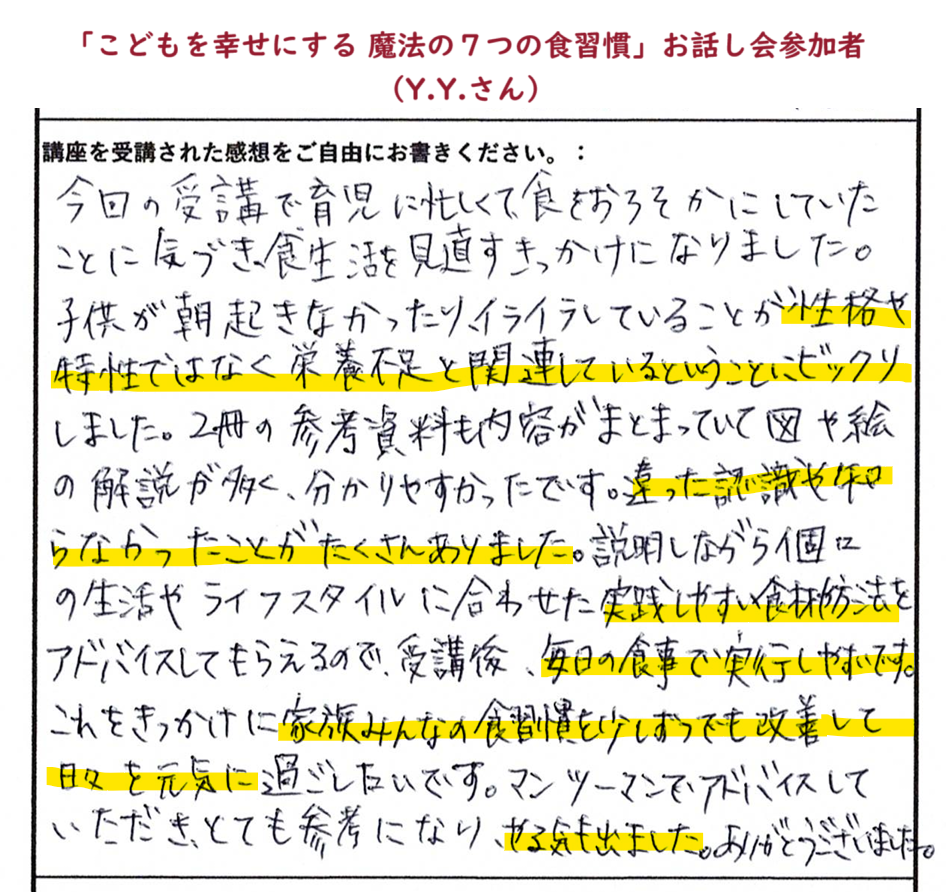 「こどもを幸せにする 魔法の７つの食習慣」お話し会参加者
（Y.Y.さん）
講座を受講された感想をご自由にお書きください。：
今回の受講で育児に忙しくて、食をおろそかにしていた
ことに気づき、食生活を見直すきっかけになりました。
子供が朝起きなかったり、イライラしていることが性格や
特性ではなく栄養不足と関連しているということにビックリ
しました。2冊の参考資料も内容がまとまっていて図や絵
の解説が多く、分かりやすかったです。違った認識や知
らなかったことがたくさんありました。説明しながら個々
の生活やライフスタイルに合わせた実践しやすい食材や方法を
アドバイスしてもらえるので、受講後、毎日の食事で実行しやすいです。
これをきっかけに家族みんなの食習慣を少しずつでも改善して
日々を元気に過ごしたいです。マンツーマンでアドバイスして
いただき、とても参考になり、やる気も出ました。ありがとうございました。